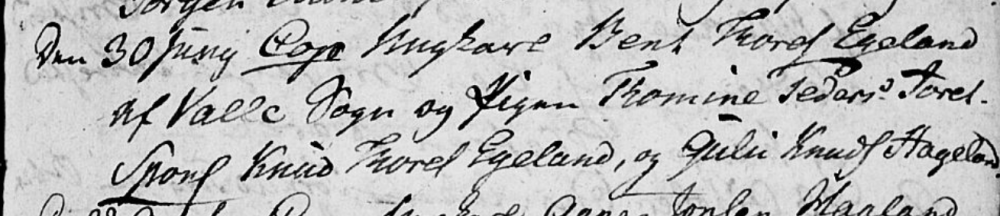 Den 30 Junij Cop Ungkarl Bent Thores Egeland
af Valle Sogn og Pigen Thomine Peders:
Spons Knud Thores Egeland, og Gulu Knuds Hageland
Jonsen